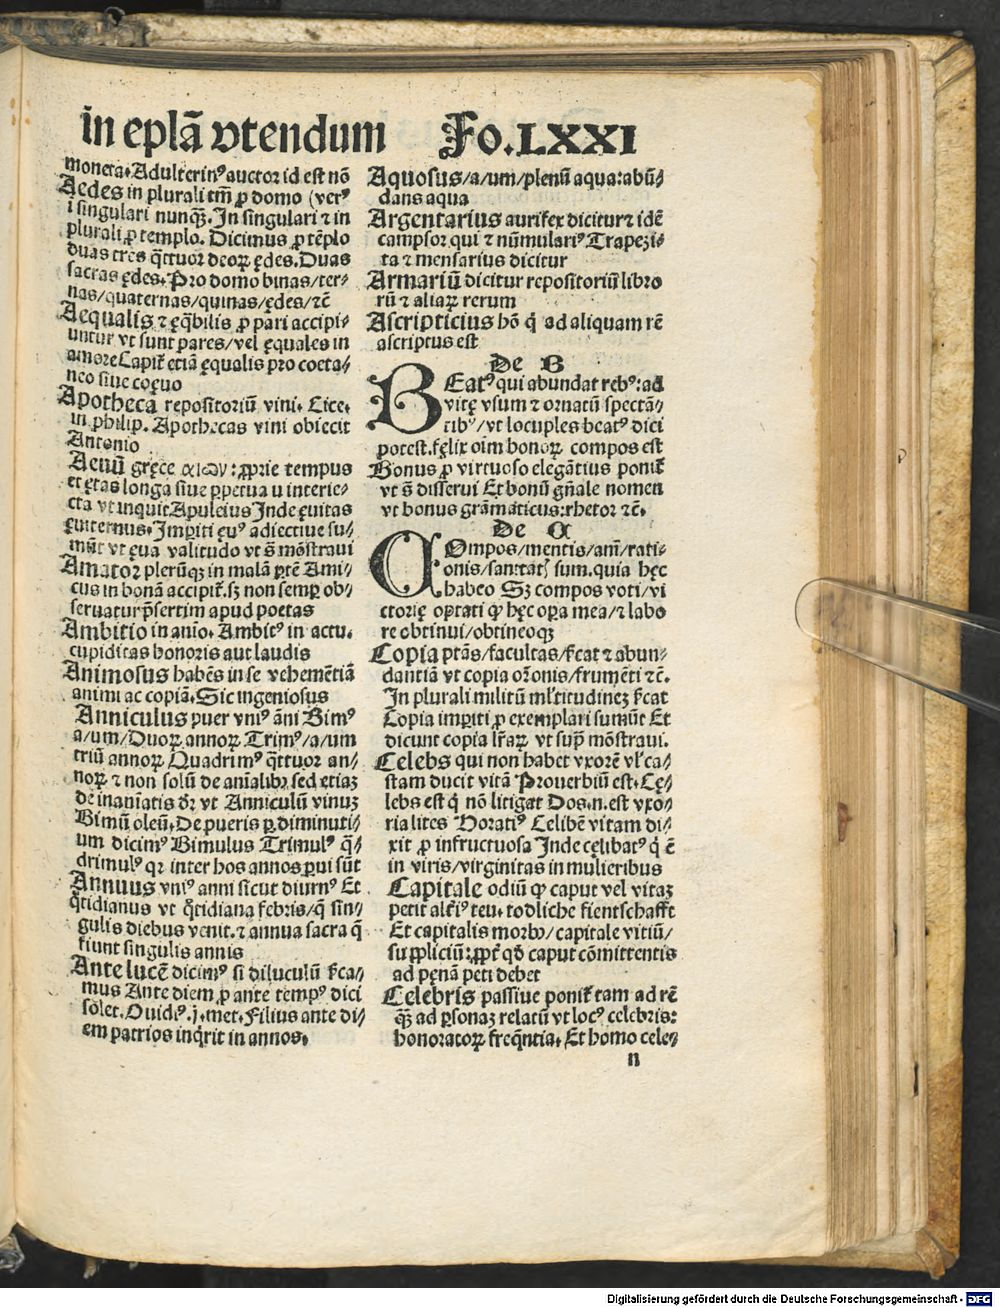 in eplā vtendum Fo.LXXI
moneta. Adulterinꝰ auctor id est nō
Aedes in plurali tm̄ ꝓ domo (verꝰ
i singulari nunqꝫ. In singulari ⁊ in
plurali ꝓ templo. Dicimus ꝓ tēplo
duas tres q̄ttuor deoꝝ ędes. Duas
sacras ędes. Pro domo binas/ter⸗
nas/quaternas/quinas/ędes/⁊c̄
Aequalis ⁊ ęq̄bilis ꝓ pari accipi⸗
untur vt sunt pares/vel ęquales in
amore Capit᷑ etiā ęqualis pro coeta⸗
neo siue coęuo
Apotheca repositoriū vini. Cice.
in philip. Apothecas vini obiecit
Antonio
Aeuū gręce αιων: ꝓprie tempus
et ętas longa siue ꝑpetua u interie⸗
cta vt inquit Apuleius Inde ęuitas
ęuiternus. Imꝑiti ęuꝰ adiectiue su⸗
mūt vt ęua valitudo vt s̄ mōstraui
Amator plerūqꝫ in malā ꝑtē Ami⸗
cus in bonā accipit᷑. sꝫ non semꝑ ob⸗
seruatur p̄sertim apud poetas
Ambitio in aīo. Ambitꝰ in actu.
cupiditas honoris aut laudis
Animosus habēs in se vehemētiā
animi ac copiā. Sic ingeniosus
Anniculus puer vniꝰ āni Bimꝰ
a/um/Duoꝝ annoꝝ Trimꝰ/a/um
triū annoꝝ Quadrimꝰ q̄ttuor an⸗
noꝝ ⁊ non solū de aīalibꝰ sed etiaꝫ
de inaīatis dr̄ vt Anniculū vinuꝫ
Bimū oleū. De pueris ꝑ diminuti⸗
um dicimꝰ Bimulus Trimulꝰ q̄⸗
drimulꝰ qꝛ inter hos annos ꝑui sūt
Annuus vniꝰ anni sicut diurnꝰ Et
q̄tidianus vt q̄tidiana febris/q̄ sin⸗
gulis diebus venit. ⁊ annua sacra q̄
fiunt singulis annis
Ante lucē dicimꝰ si diluculū s̄ca⸗
mus Ante diem ꝓ ante tempꝰ dici
solet. Ouidꝰ .j. met. Filius ante di⸗
em patrios inq̄rit in annos.
Aquosus/a/um/plenū aqua: abū⸗
dans aqua
Argentarius aurifex dicitur ⁊ idē
campsor qui ⁊ nūmulariꝰ Trapezi⸗
ta ⁊ mensarius dicitur
Armariū dicitur repositoriū libro
rū ⁊ aliaꝝ rerum
Ascripticius hō q̄ ad aliquam rē
ascriptus est
De B
BEatꝰ qui abundat rebꝰ: ad
vitę vsum ⁊ ornatū spectā⸗
tibꝰ/vt locuples beatꝰ dici
potest. fęlix oīm bonoꝝ compos est
Bonus ꝓ virtuoso elegātius ponit᷑
vt s̄ disserui Et bonū gn̄ale nomen
vt bonus gramaticus: rhetor ⁊c̄.
De C
COmpos/mentis/anī/rati⸗
onis/sanitatꝭ sum. quia hęc
habeo Sꝫ compos voti/vi
ctorię optati qꝫ hęc oꝑa mea/⁊ labo
re obtinui/obtineoqꝫ
Copia ptās/facultas/s̄cat ⁊ abun⸗
dantiā vt copia or̄onis/frumēti ⁊c̄.
In plurali militū ml̄titudinez s̄cat
Copia imꝑiti ꝓ exemplari sumūt Et
dicunt copia lr̄aꝝ vt sup̄ mōstraui.
Celebs qui non habet vxorē vl̓ ca⸗
stam ducit vitā Prouerbiū est. Cę⸗
lebs est q̄ nō litigat Dos .n. est vxo⸗
ria lites Horatiꝰ Celibē vitam di⸗
xit ꝓ infructuosa Inde cęlibatꝰ q̄ ē
in viris/virginitas in mulieribus
Capitale odiū qꝫ caput vel vitaꝫ
petit alt̓iꝰ teu. todliche fientschafft
Et capitalis morbꝰ/capitale vitiū/
supplicium: ꝓpt̓ qd̄ caput cōmittentis
ad pęnā peti debet
Celebris passiue ponit᷑ tam ad rē
qꝫ ad ꝑsonaꝫ relatū vt locꝰ celebris:
honoratoꝝ freq̄ntia. Et homo cele⸗
n
Digitalisierung gefördert durch die Deutsche Forschungsgemeinschaft - DFG